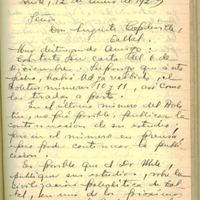 Quito, 12 de Enero de 192
Señor
Don Augusto Capdeville.
Taltal.
Muy distinguido Amigo:
Contesto su carta del 6 de
Diciembre. Supongo que a esta
fecha, habrá Ud. ya recibido, el
Boletín número 10 y 11, así como
los tirados a parte.
En el último número del Bole-
tín, no fué posible publicar la
continuación de su estudio;
pero en el número en prensa,
podré continuar la publi-
cación.
Es posible que el Dr. Uhle,
publique sus estudios, sobre la
Civilización paleolítica de Tal-
tal, en uno de los próximos